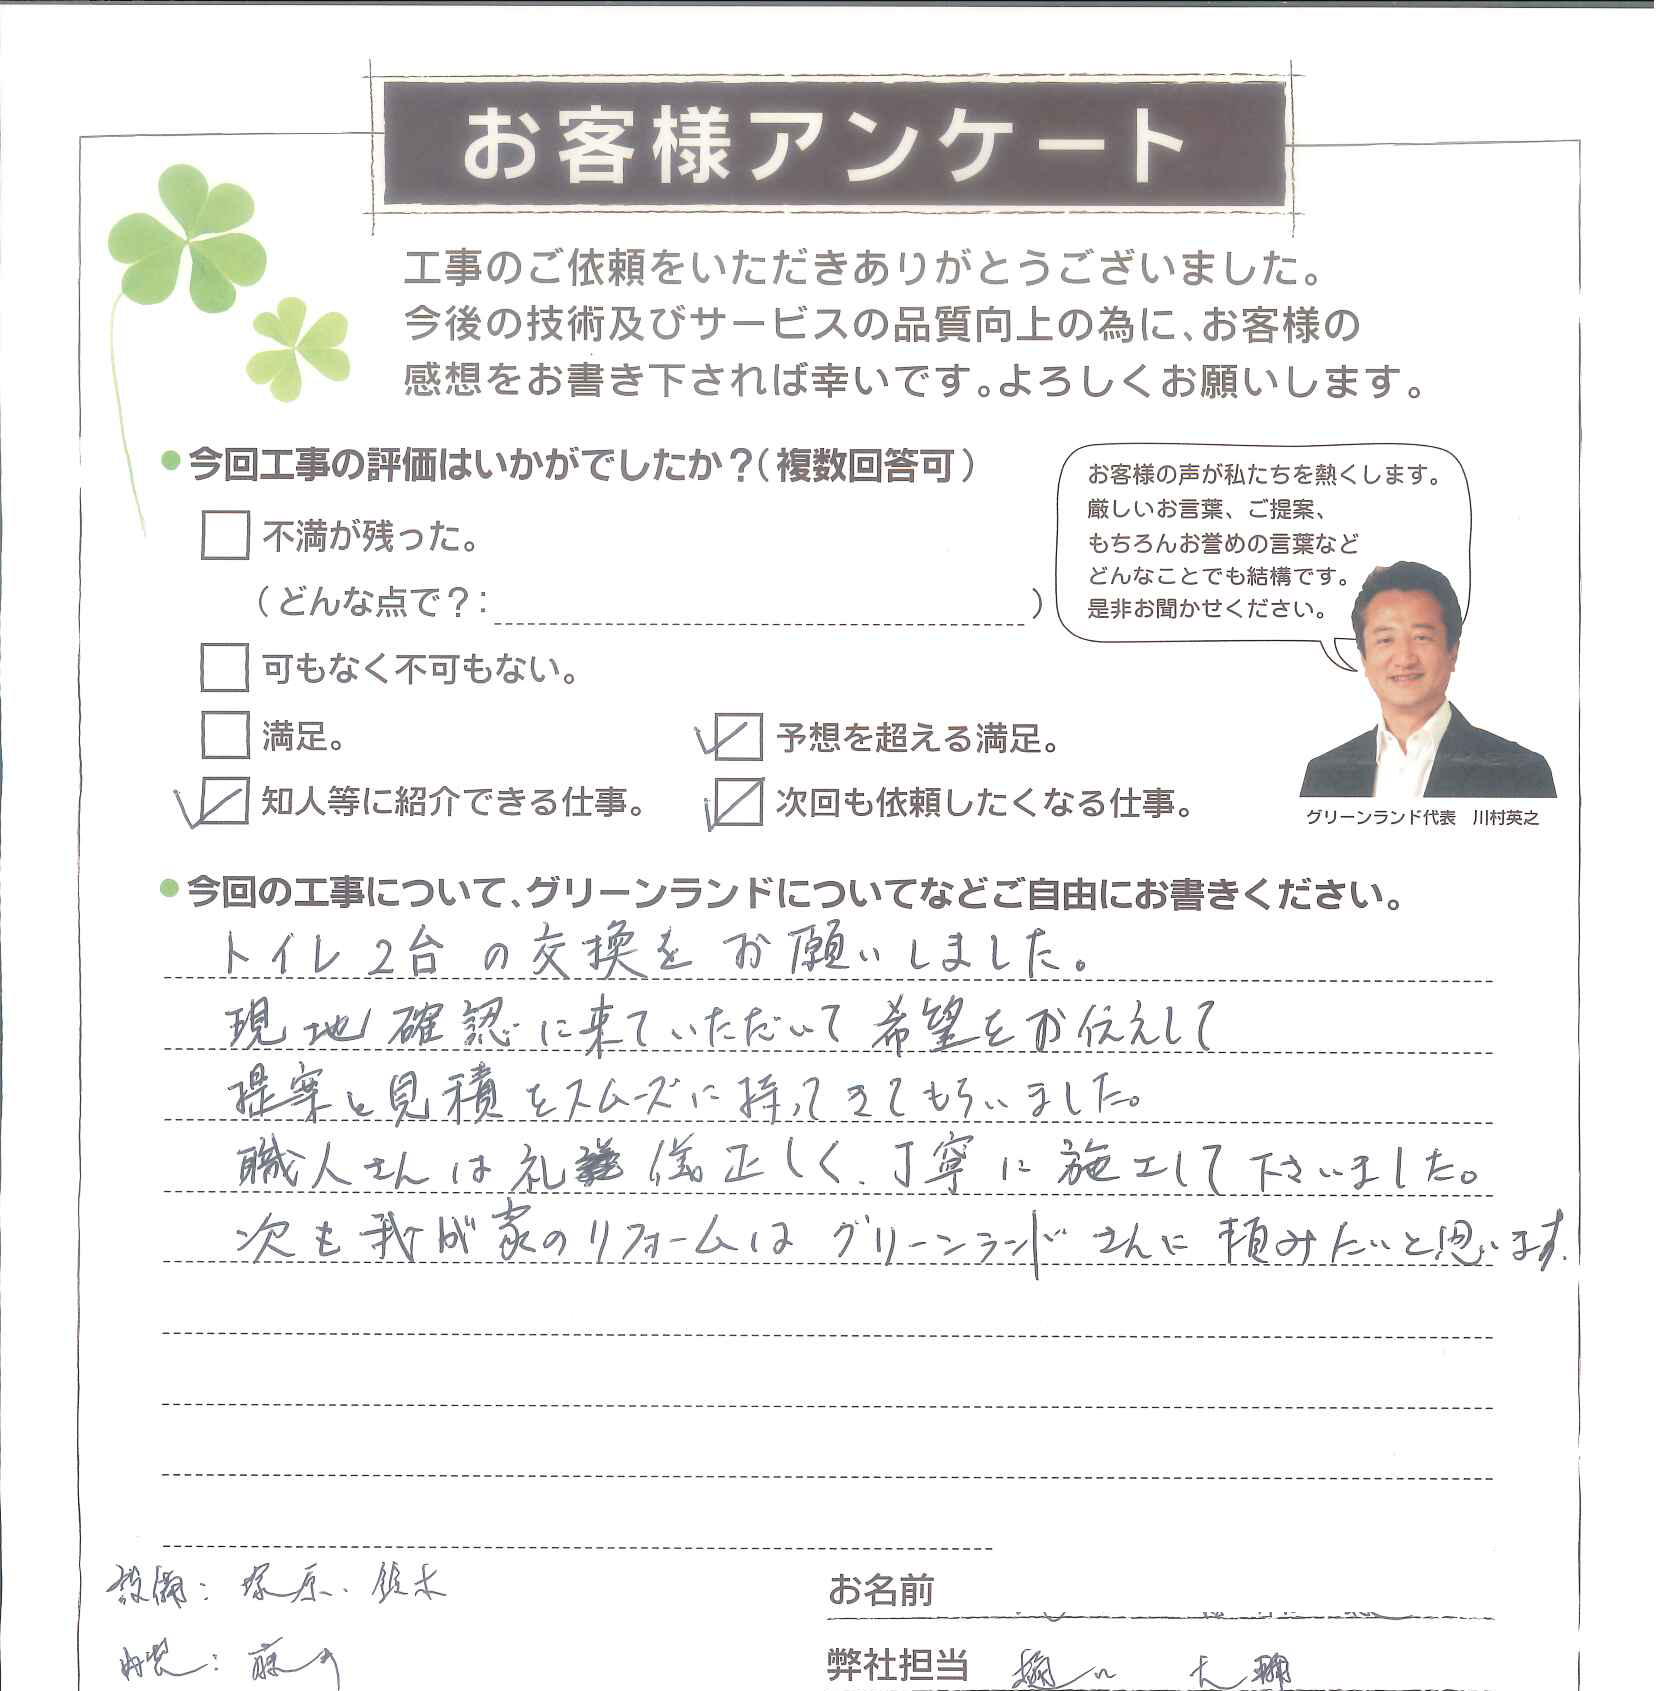 お客様アンケート
工事のご依頼をいただきありがとうございました。
今後の技術及びサービスの品質向上の為に、お客様の
感想をお書き下されば幸いです。よろしくお願いします。
●今回工事の評価はいかがでしたか？(複数回答可)
不満が残った。
(どんな点で？: )
可もなく不可もない。
満足。
予想を超える満足。
知人等に紹介できる仕事。
次回も依頼したくなる仕事。
お客様の声が私たちを熱くします。
厳しいお言葉、ご提案、
もちろんお誉めの言葉など
どんなことでも結構です。
是非お聞かせください。
グリーンランド代表 川村英之
●今回の工事について、グリーンランドについてなどご自由にお書きください。
トイレ2台の交換をお願いしました。
現地確認に来ていただいて希望をお伝えして
提案と見積をスムーズに持ってきてもらいました。
職人さんは礼儀正しく、丁寧に施工して下さいました。
次も我が家のリフォームはグリーンランドさんに頼みたいと思います。
設備：塚原、鈴木
内装：
お名前
弊社担当